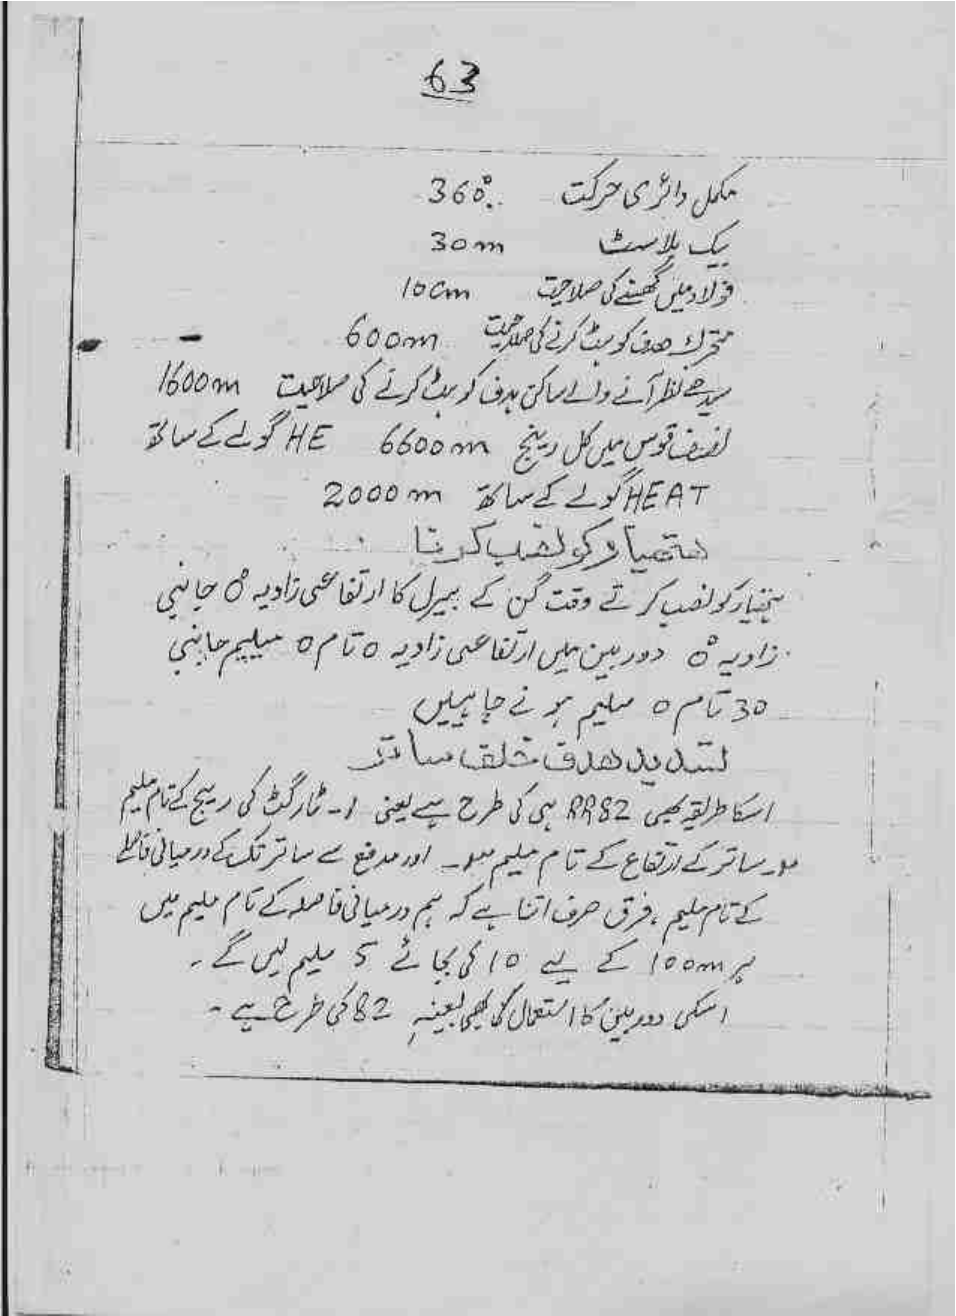 63
مکمل دائری حرکت 360°
بیک بلاسٹ 30m
فولاد میں گھسنے کی صلاحیت 10cm
متحرک ھدف کو ہٹ کرنے کی صلاحیت 600m
سیدھے نظر آنے والے ساکن ہدف کو ہٹ کرنے کی صلاحیت 1600m
نصف قوس میں کل رینج 6600m HE گولے کے ساتھ
HEAT گولے کے ساتھ 2000m
ھتھیار کو نصب کرنا
ہتھیار کو نصب کرتے وقت گن کے بیرل کا ارتفاعی زاویہ 0° جانبی
زاویہ 0° دوربین میں ارتفاعی زاویہ 0 تام 0 میلیم جانبی
30 تام 0 ملیم ہونے چاہیں
تسدید ھدف خلف ساتر
اسکا طریقہ بھی RR82 ہی کی طرح ہے یعنی 1۔ ٹارگٹ کی رینج کے تام ملیم
ساتر کے ارتفاع کے تام ملیم اور مدفع سے ساتر تک کے درمیانی فاصلے
کے تام ملیم ، فرق صرف اتنا ہے کہ ہم درمیانی فاصلہ کے تام ملیم میں
ہر 100m کے لیے 10 کی بجائے 5 ملیم لیں گے ۔
اسکی دوربین کا استعمال بھی بعینہٖ 82 کی طرح ہے ۔